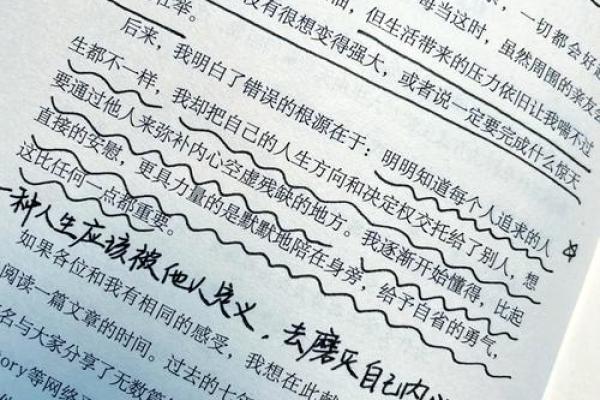 一切都会好起
每当这时，虽然周围的亲友会
但生活带来的压力依旧让我喘不过
没有很想变得强大，或者说一定要完成什么惊天
壮举。
后来，我明白了错误的根源在于：明明知道每个人追求的人
生都不一样，我却把自己的人生方向和决定权交托给了别人，想
要通过他人来弥补内心空虚残缺的地方。我逐渐开始懂得，比起
直接的安慰，更具力量的是默默地陪在身旁，给予自省的勇气，
这比任何一点都重要。
一种人生应该被他人定义，去磨灭自己内
如果各位和我有相同的感受，我想在此
阅读一篇文章的时间。过去的七年
名与大家分享了无数篇
ory等网络